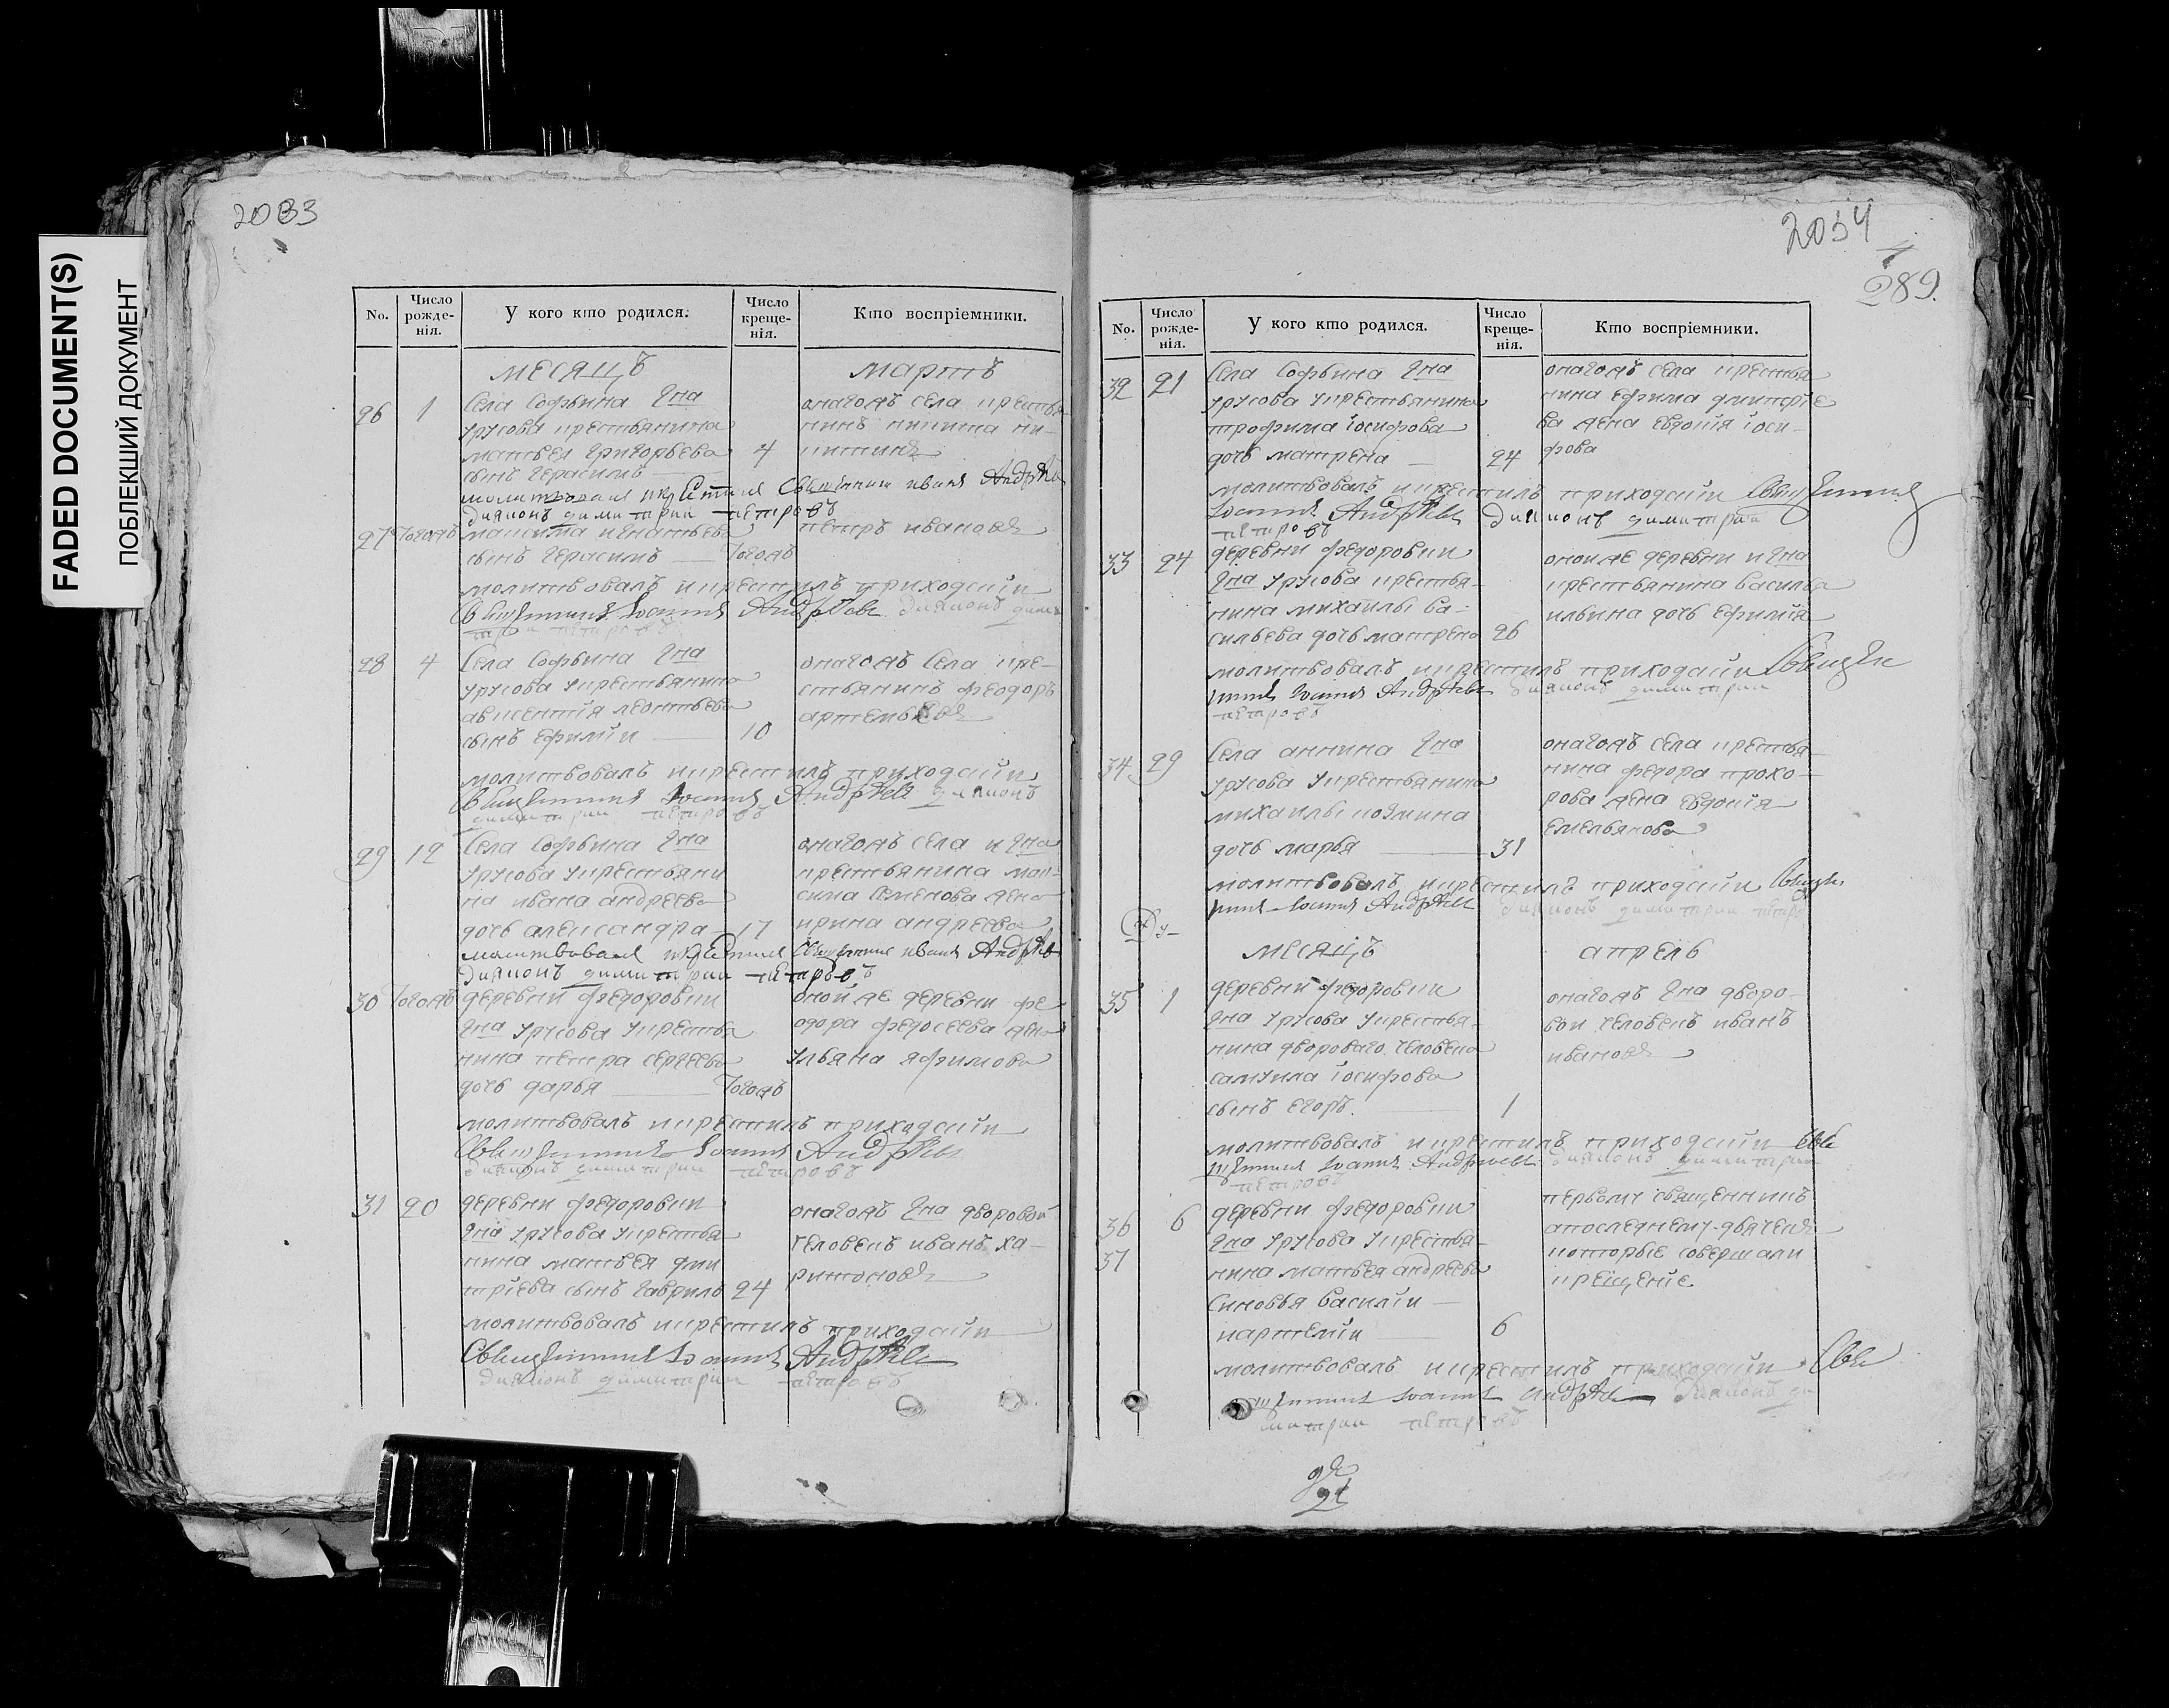 FADED DOCUMENT(S)
ПОБЛЕКШИЙ ДОКУМЕНТ
2033
No.
Число рожде-нія.
У кого кто родился.
Число креще-нія.
Кто воспріемники.
месяцъ мартъ
26 1 села Софьина Гна
урусова крестьянина
матвея григорьева 4
сынъ герасимъ
онагожъ села крестья-
нинъ никита ни-
китинъ
молитвовалъ и крестилъ священникъ иванъ Андрѣевъ
диаконъ димитрии петровъ
27 тогожъ максима игнатьева
сынъ герасимъ тогожъ
петръ ивановъ
молитвовалъ и крестилъ приходский
священникъ Іоаннъ Андрѣевъ диаконъ дими
трии петровъ
28 4 села Софьина Гна
урусова крестьянина
авксентія леонтьева
сынъ ефимій 10
онагожъ села кре-
стьянинъ феодоръ
артемьевъ
молитвовалъ и крестилъ приходский
священникъ Іоаннъ Андрѣевъ диаконъ
димитрии петровъ
29 12 села Софьина Гна
урусова крестьяни
на ивана андреева
дочь александра 17
онагожъ села и Гна
крестьянина мак-
сима семенова жена
ирина андреева
молитвовалъ и крестилъ священникъ иванъ Андрѣевъ
диаконъ димитрии петровъ
30 тогожъ деревни федоровки
Гна урусова крестья
нина петра сергеева
дочь дарья тогожъ
оной же деревни фе
одора федосеева жена
ульяна яфимова
молитвовалъ и крестилъ приходский
Священникъ Іоаннъ Андрѣевъ
диаконъ димитрии петровъ
31 20 деревни федоровки
Гна урусова крестья
нина матвея дми
тріева сынъ гаврило 24
онагожъ Гна дворовой
человекъ иванъ ха-
ритоновъ
молитвовалъ и крестилъ приходский
Священникъ Іоаннъ Андрѣевъ
диаконъ димитрии петровъ
2034
289.
No.
Число рожде-нія.
У кого кто родился.
Число креще-нія.
Кто воспріемники.
32 21 села Софьина Гна
урусова крестьянина
трофима іосифова
дочь матрена 24
онагожъ села крестья
нина ефима дмитріе
ва жена евдокія іоси-
фова
молитвовалъ и крестилъ приходский священникъ
Іоаннъ Андрѣевъ диаконъ димитрии
петровъ
33 24 деревни федоровки
Гна урусова крестья-
нина михаилы ва-
сильева дочь матрена 26
оной же деревни и Гна
крестьянина василья
ильина дочь ефимія
молитвовалъ и крестилъ приходский свяще
нникъ Іоаннъ Андрѣевъ диаконъ димитрии
петровъ
34 29 села аннина Гна
урусова крестьянина
михаилы козмина
дочь марья 31
онагожъ села крестья-
нина федора прохо-
рова жена евдокія
емельянова
молитвовалъ и крестилъ приходский священ
никъ Іоаннъ Андрѣевъ диаконъ димитрии петро
месяцъ апрель
35 1 деревни федоровки
Гна урусова крестья-
нина двороваго человека
самуила іосифова
сынъ егоръ 1
онагожъ Гна дворо-
вой человекъ иванъ
ивановъ
молитвовалъ и крестилъ приходский свя
щенникъ Іоаннъ Андрѣевъ диаконъ димитрии
петровъ
36 6 деревни федоровки
37 Гна урусова крестья-
нина матвея андреева
синовья василій
картемій 6
первому священникъ
апоследнему дьячекъ
которые совершали
крещеніе
молитвовалъ и крестилъ приходский свя
щенникъ Іоаннъ Андрѣевъ диаконъ ди
митрии петровъ